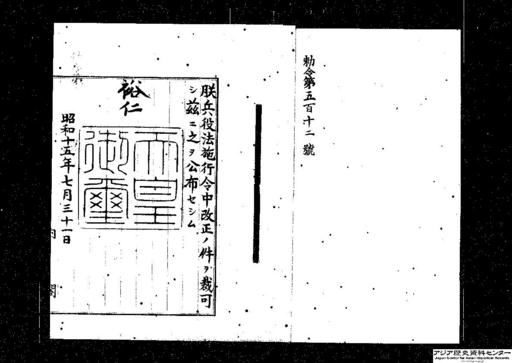 勅令第五百十二號
朕兵役法施行令中改正ノ件ヲ裁可
シ茲ニ之ヲ公布セシム
裕仁
天皇
御璽
昭和十五年七月三十一日
内閣
アジア歴史資料センター
Japan Center for Asian Historical Records